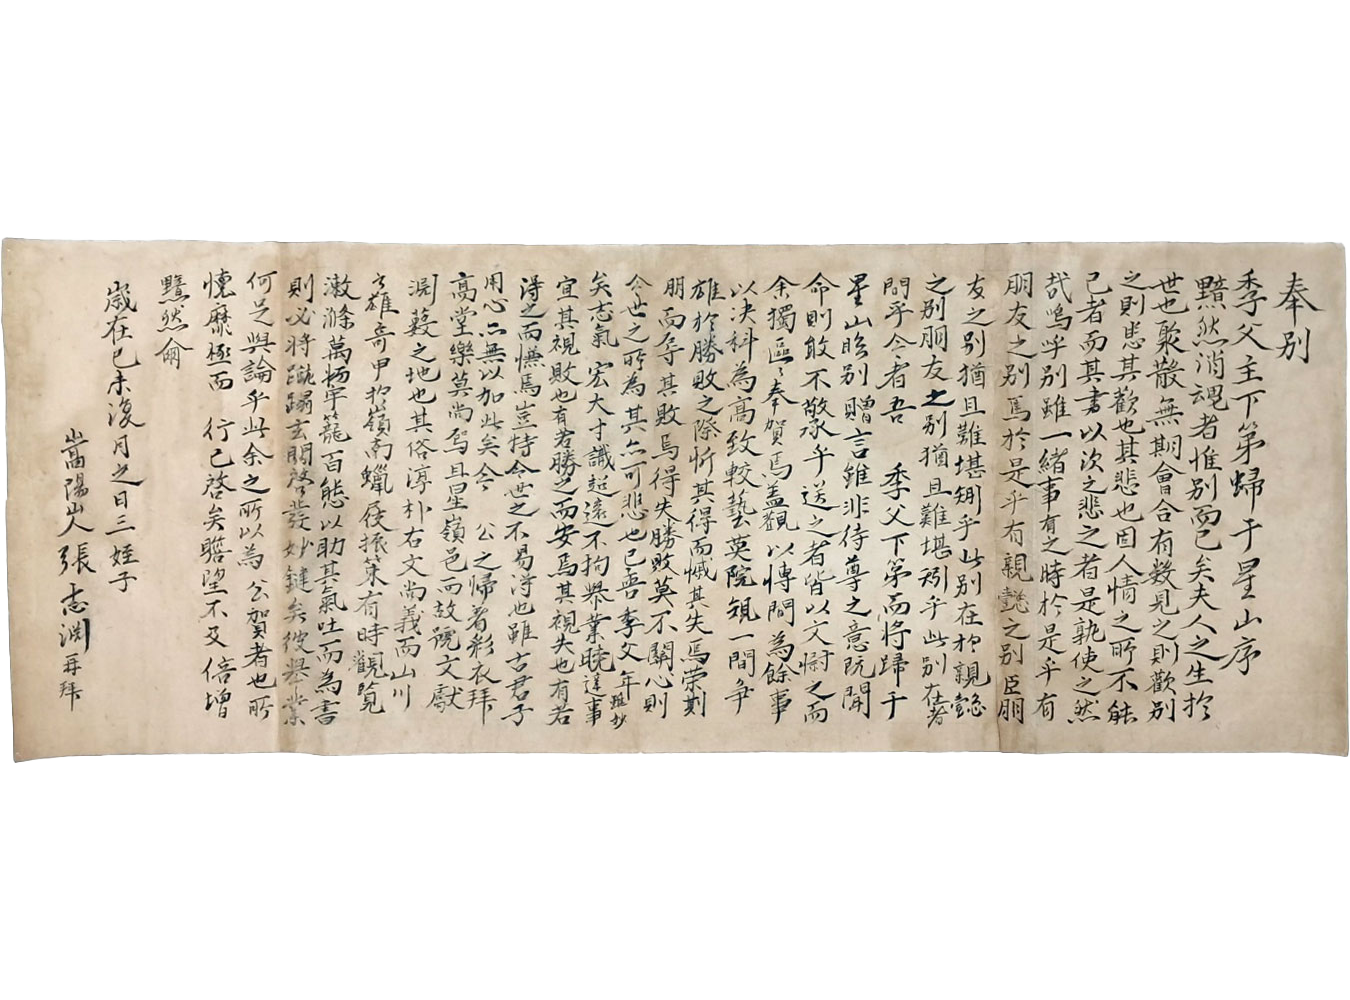 奉別
季父主下第歸于星山序
黯然消魂者惟別而已矣夫人之生於
世也聚散無期會合有數見之則歡別
之則悲其歡也其悲也因人情之所不能
已者而其書以次之悲之者是孰使之然
哉嗚呼別雖一緖事有之時於是乎有
朋友之別焉於是乎有親懿之別臣朋
友之別猶且難堪矧乎此別在於親懿
之別朋友之別猶且難堪矧乎此別在著
問乎今者吾 季父下第而將歸于
星山臨別贈言雖非待尊之意阮聞
命則敢不敬承乎送之者皆以文慰之而
余獨區々奉賀焉盖觀以愽間為餘事
以決科為高致較藝英院短一間爭
雄於勝敗之際忻其得而慽其失焉榮刻
朋而辱其敗焉得失勝敗莫不關心則
今世之所為其亦可悲也已吾季父年雖妙
矣志氣宏大才識超遠不拘擧業曉達事
宜其視敗也有若勝之而安焉其視失也有若
得之而憮焉豈恃今世之不易得也雖古君子
用心亦無以加此矣今 公之歸着彩衣拜
高堂樂莫尚焉且星嶺邑而故號文獻
淵藪之地也其俗淳朴右文尚義而山川
之雄奇甲於嶺南蠟屐振策有時觀覧
漱滌萬物牢籠百態以助其氣吐而為書
則必將蹴蹋玄關啓發妙鍵矣彼擧業
何足與論乎此余之所以為 公賀者也所
懷靡極而 行已啓矣瞻望不及倍增
黯然爾
歲在己未復月之日三姪子
嵩陽山人張志淵再拜